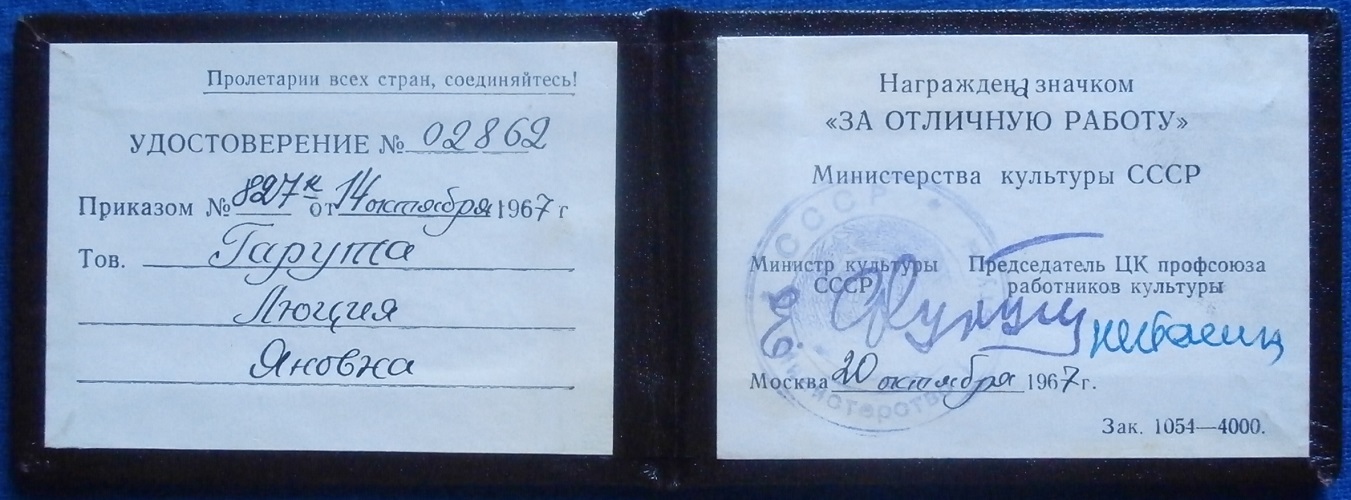 Пролетарии всех стран, соединяйтесь!
УДОСТОВЕРЕНИЕ № 02862
Приказом № 827к от 14 октября 1967 г
Тов. Гарута
Люция
Яновна
Награждена значком
«ЗА ОТЛИЧНУЮ РАБОТУ»
Министерства культуры СССР
СССР
Министр культуры
СССР
Председатель ЦК профсоюза
работников культуры
Москва 20 октября 1967 г.
Министерство
Зак. 1054—4000.